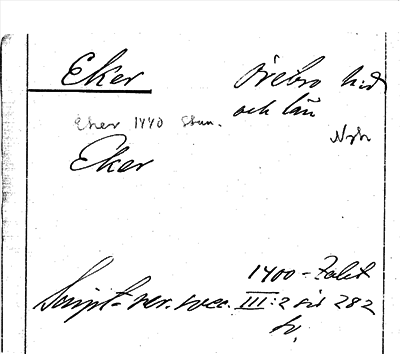 Eker
Örebro hd
och län
Eker 1440 Skan.
Nrk
Eker
1400-talet
Script. rer. svec. III:2 sid 282